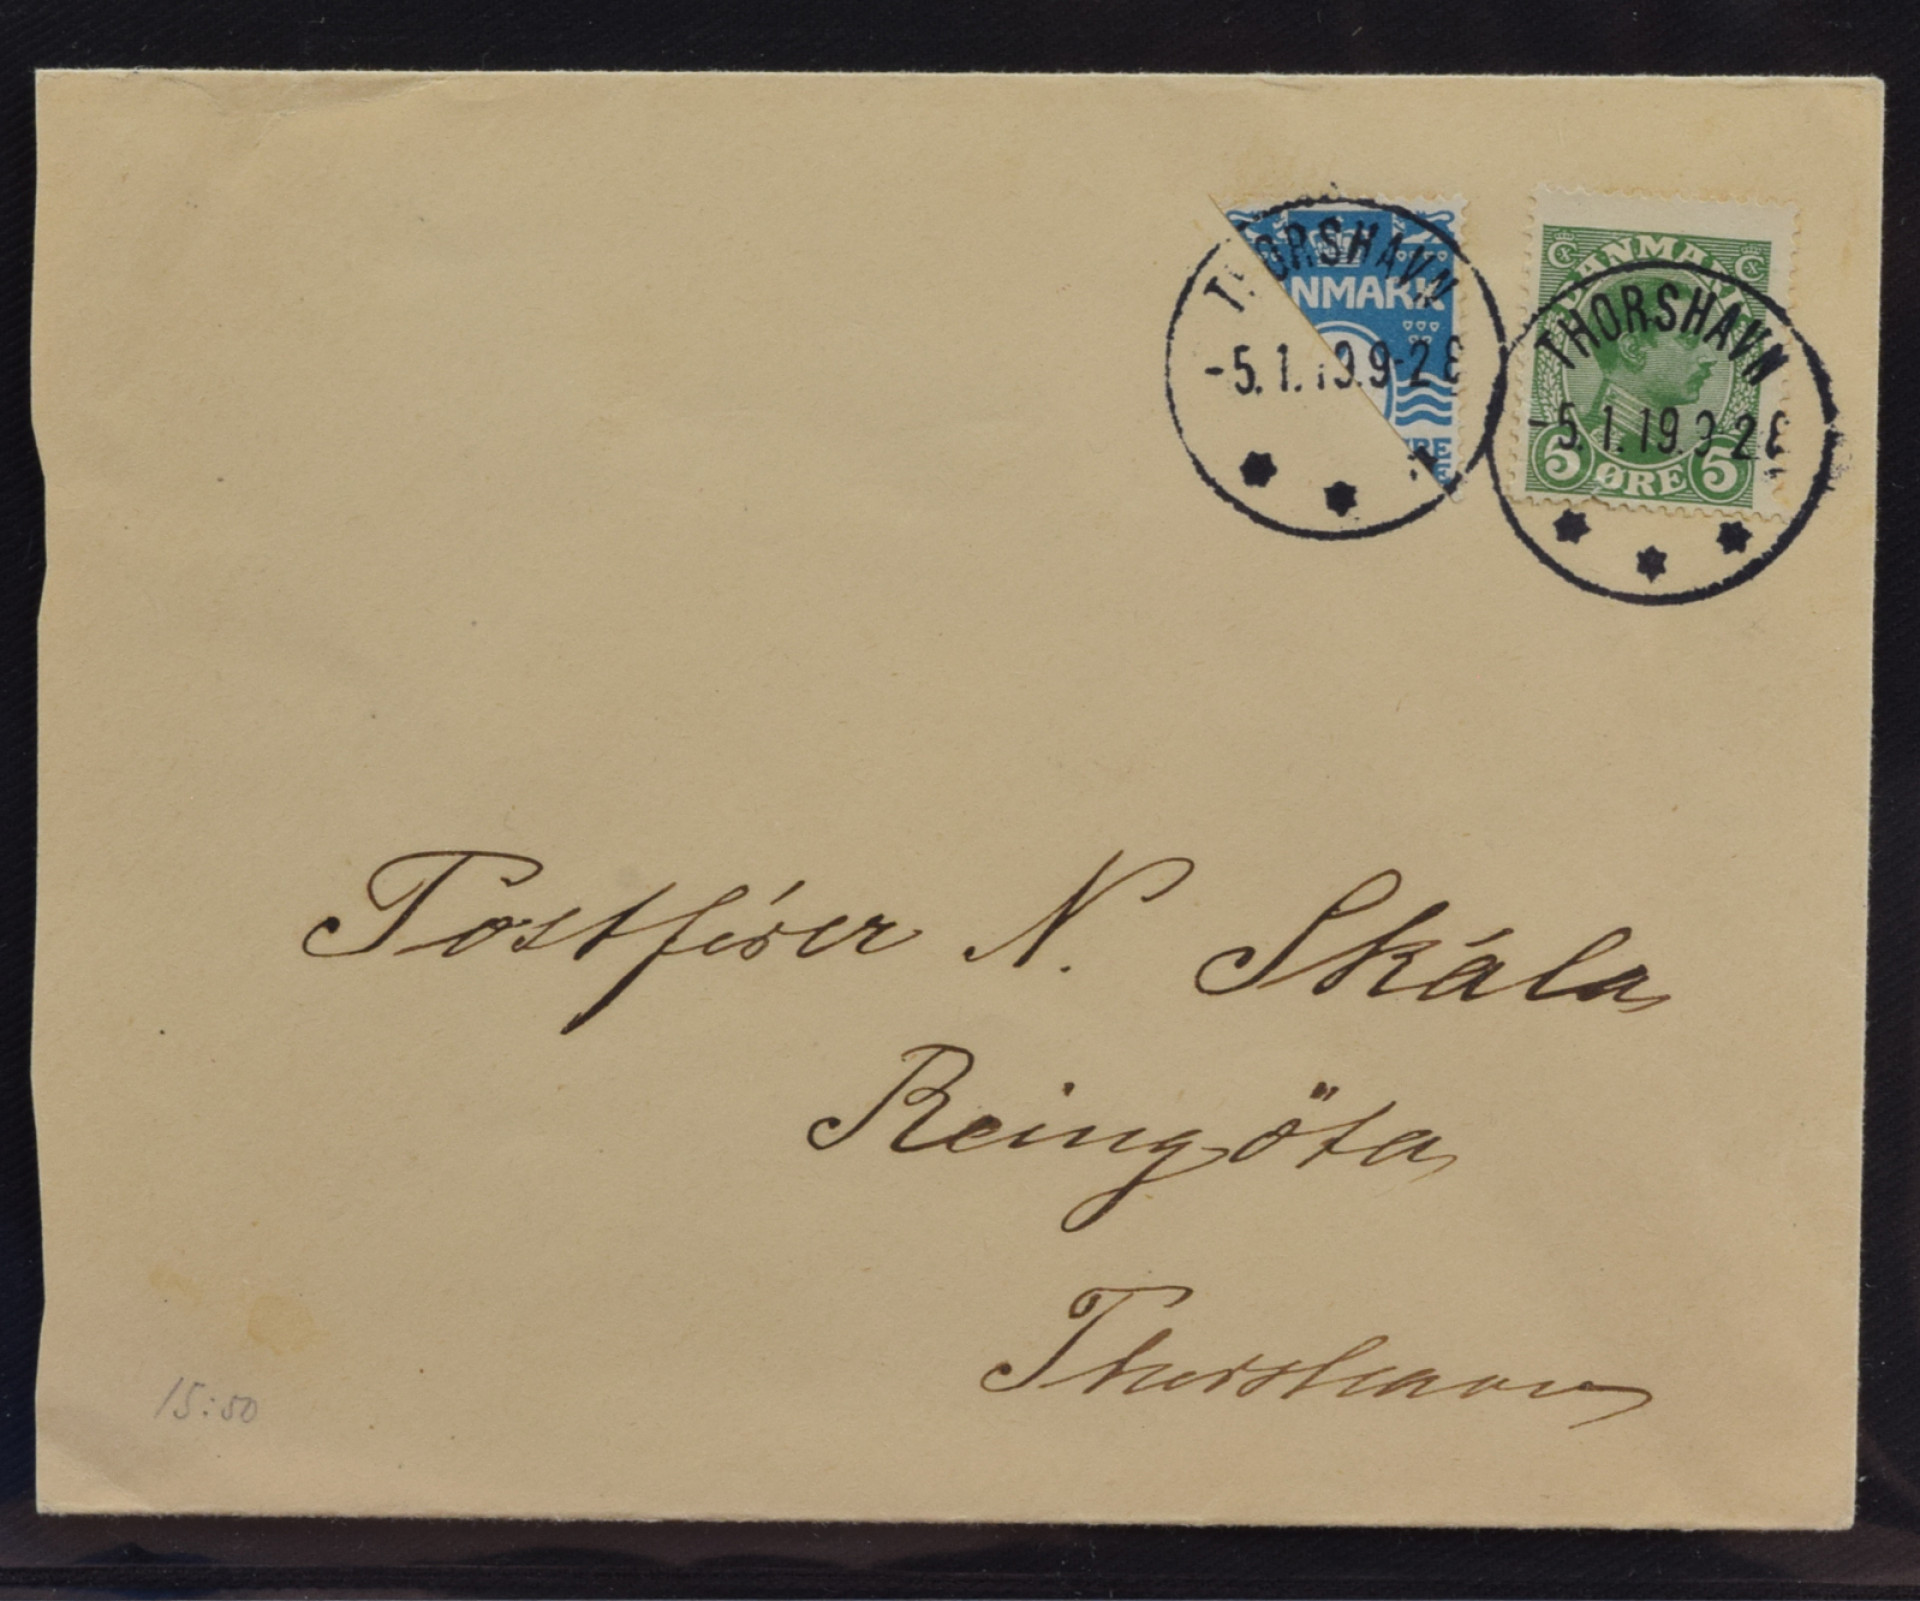 THORSHAVN
NMARK
-5.1.19.9-2E
ØRE
DANMARK
THORSHAVN
-5.1.19.9-2E
5 ØRE 5
Postfører N. Skála
Reingöta
Thorshavn
15:50